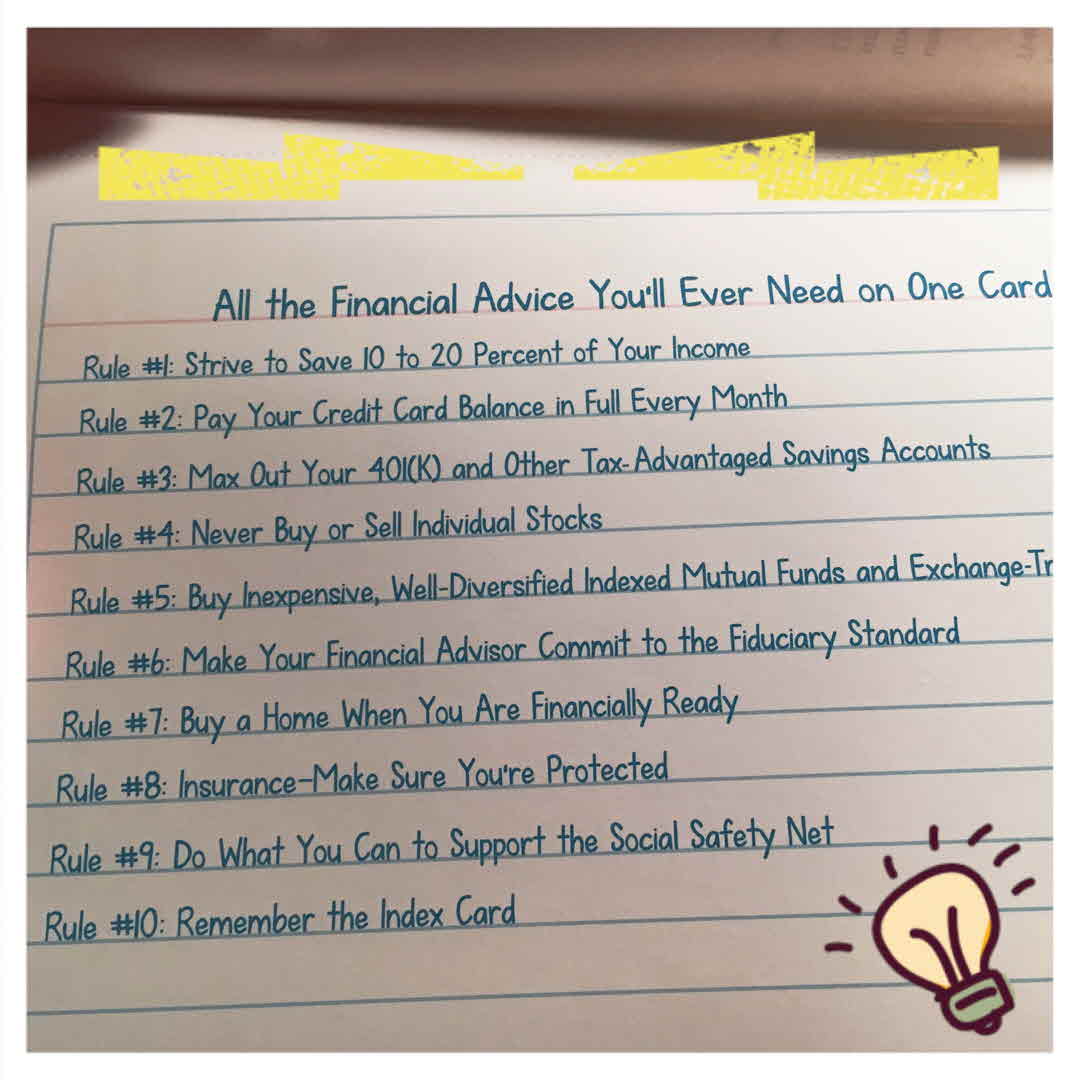 All the Financial Advice You'll Ever Need on One Card
Rule #1: Strive to Save 10 to 20 Percent of Your Income
Rule #2: Pay Your Credit Card Balance in Full Every Month
Rule #3: Max Out Your 401(K) and Other Tax-Advantaged Savings Accounts
Rule #4: Never Buy or Sell Individual Stocks
Rule #5: Buy Inexpensive, Well-Diversified Indexed Mutual Funds and Exchange-Tr
Rule #6: Make Your Financial Advisor Commit to the Fiduciary Standard
Rule #7: Buy a Home When You Are Financially Ready
Rule #8: Insurance-Make Sure You're Protected
Rule #9: Do What You Can to Support the Social Safety Net
Rule #10: Remember the Index Card